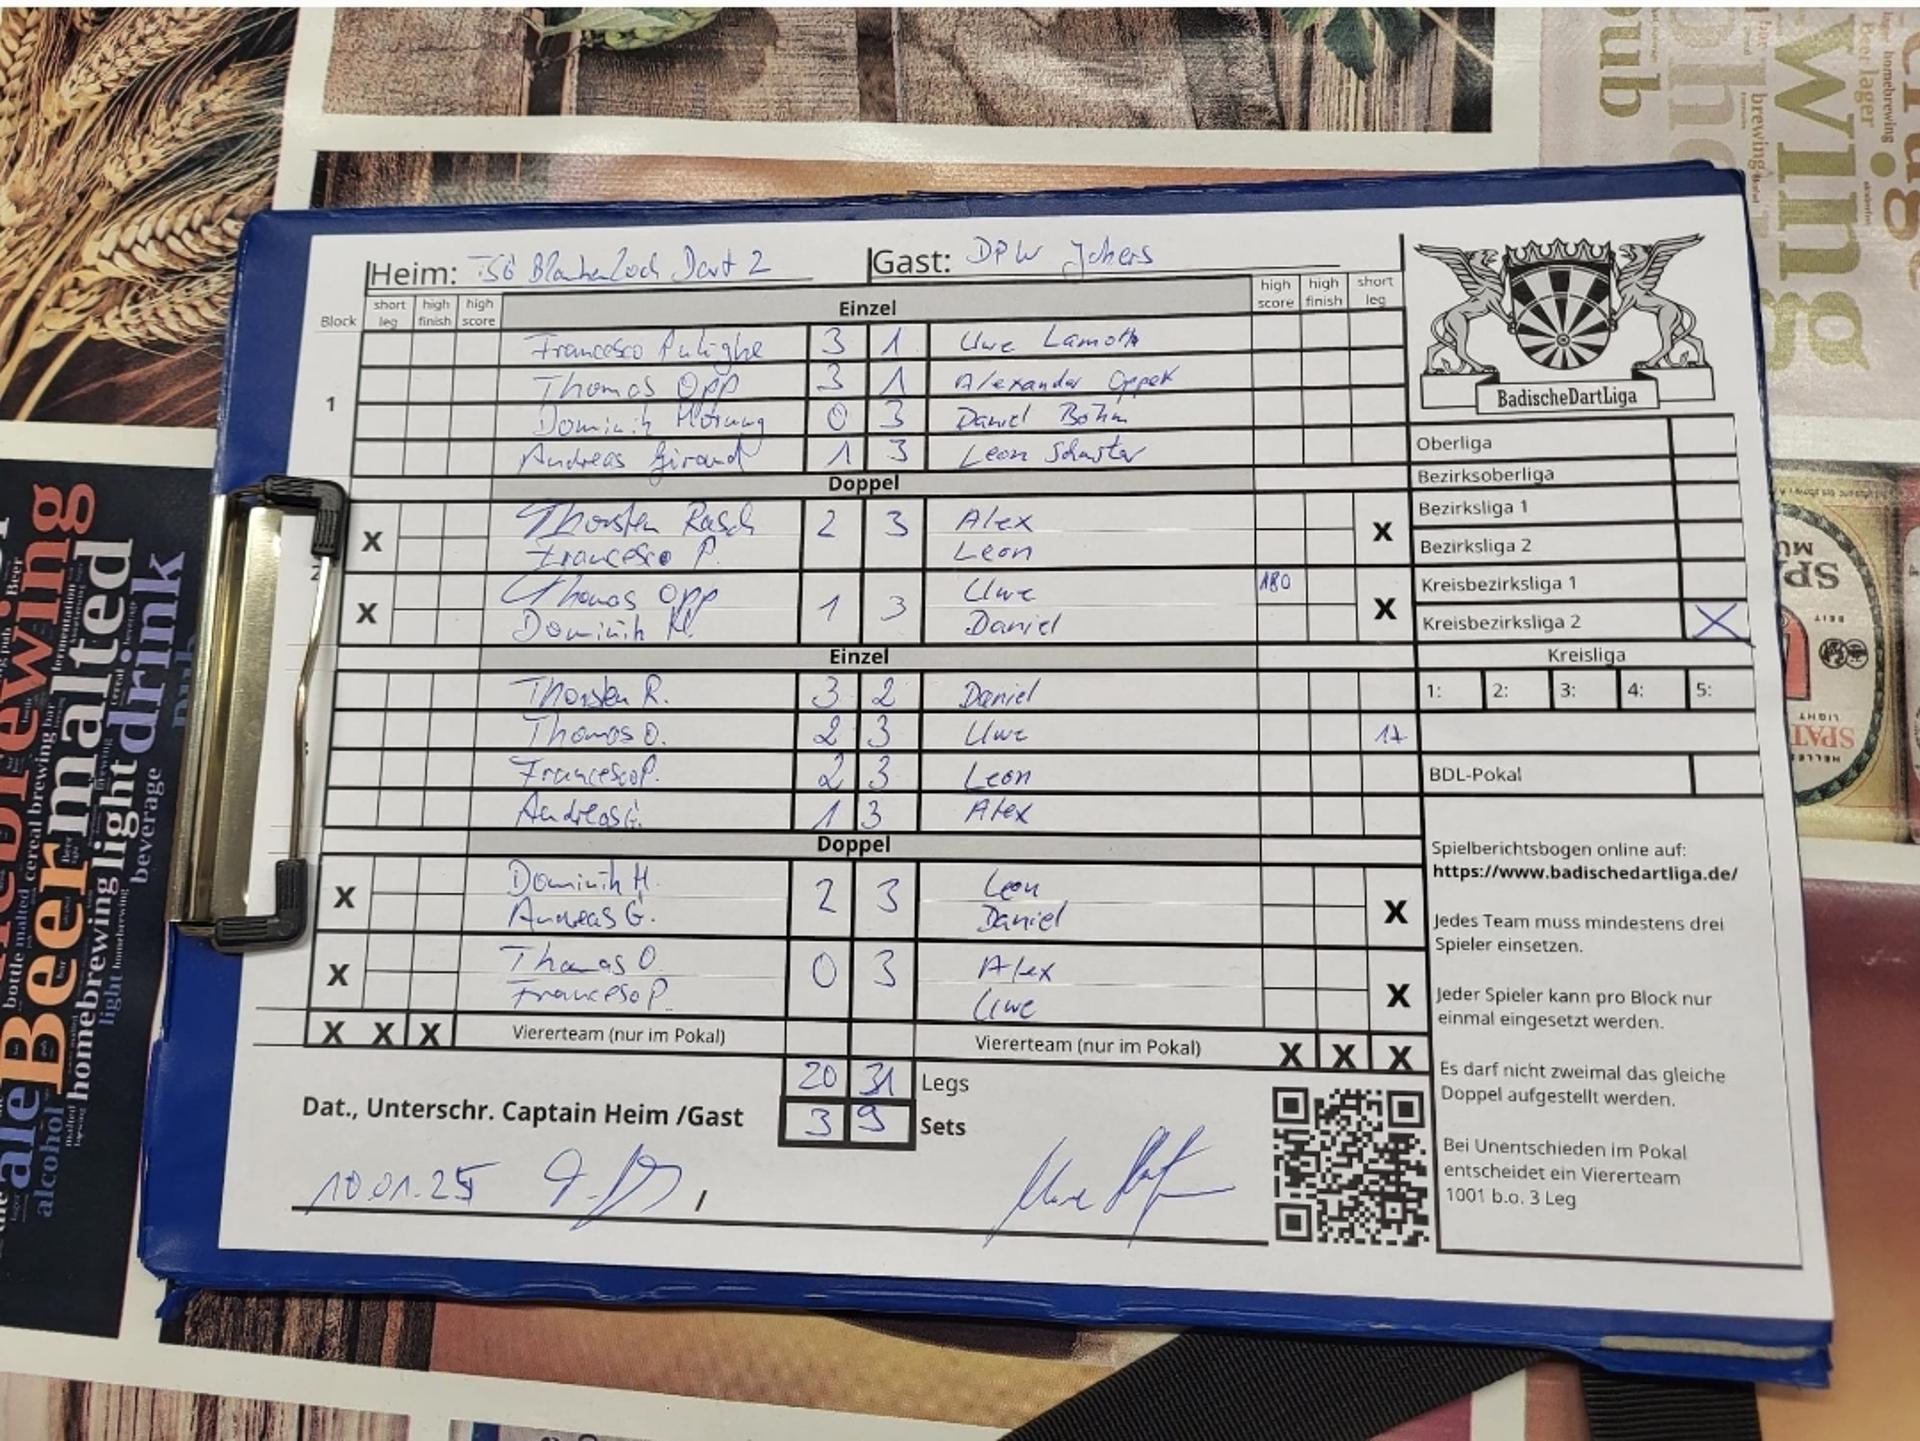 Heim: TSG Blankenloch Dart 2 Gast: DPW Jokers
Block short leg high finish high score Einzel high score high finish short leg
1
Francesco Pulighe 3 1 Uwe Lamoth
Thomas Opp 3 1 Alexander Oppek
Dominik Hornung 0 3 Daniel Böhm
Andreas Girand 1 3 Leon Schuster
Doppel
X Thorsten Rasch 2 3 Alex X
Francesco P. Leon
2
X Thomas Opp 1 3 Uwe 180 X
Dominik H. Daniel
Einzel
Thorsten R. 3 2 Daniel
Thomas O. 2 3 Uwe 17
Francesco P. 2 3 Leon
Andreas G. 1 3 Alex
Doppel
X Dominik H. 2 3 Leon X
Andreas G. Daniel
X Thomas O. 0 3 Alex X
Francesco P. Uwe
X X X Viererteam (nur im Pokal) Viererteam (nur im Pokal) X X X
20 31 Legs
Dat., Unterschr. Captain Heim /Gast 3 9 Sets
10.01.25 /
BadischeDartLiga
Oberliga
Bezirksoberliga
Bezirksliga 1
Bezirksliga 2
Kreisbezirksliga 1
Kreisbezirksliga 2 X
Kreisliga
1: 2: 3: 4: 5:
BDL-Pokal
Spielberichtsbogen online auf:
https://www.badischedartliga.de/
Jedes Team muss mindestens drei
Spieler einsetzen.
Jeder Spieler kann pro Block nur
einmal eingesetzt werden.
Es darf nicht zweimal das gleiche
Doppel aufgestellt werden.
Bei Unentschieden im Pokal
entscheidet ein Viererteam
1001 b.o. 3 Leg
Beer malted
homebrewing light drink
beverage
ale
alcohol
bottle malted cereal brewing bar
light homebrewing
brewing
pub
wing
Beer lager
homebrewing
SPAT
LIGHT